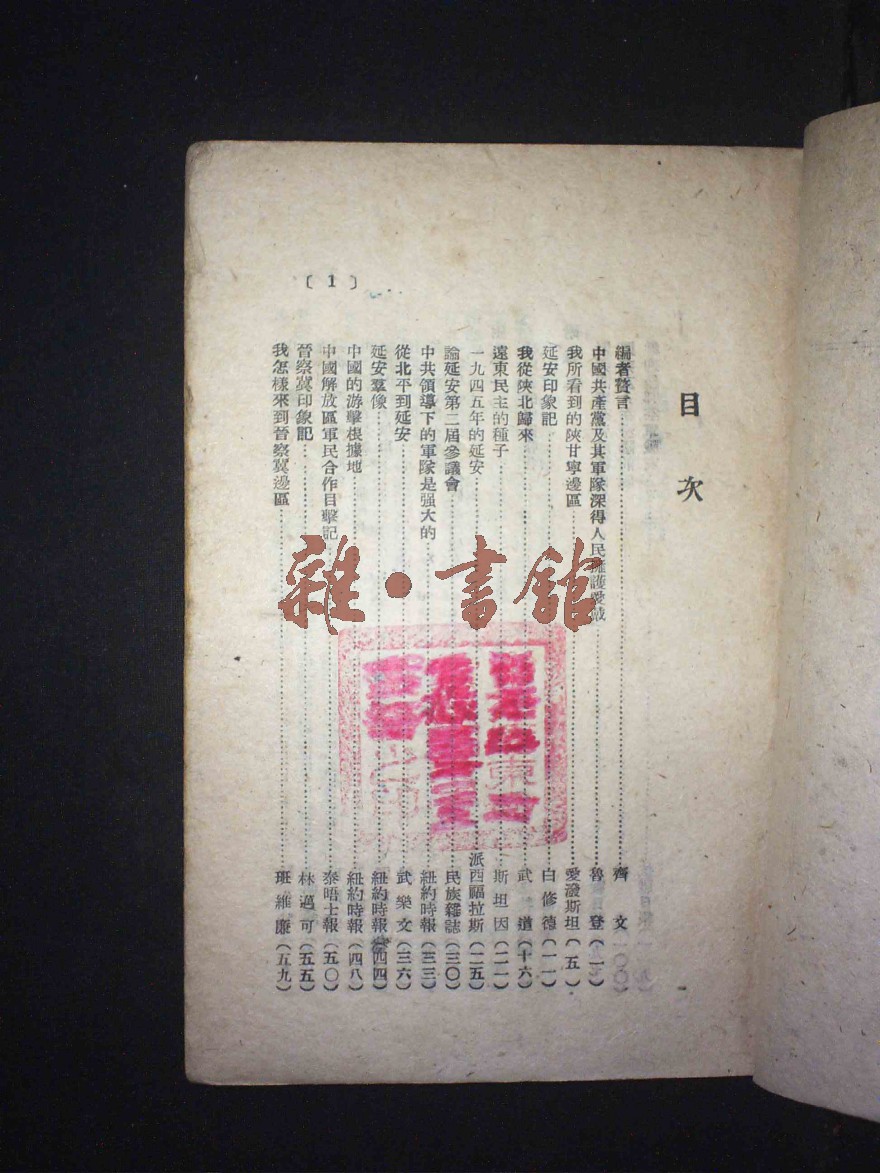 目次
編者贅言……齊文
中國共產黨及其軍隊深得人民擁護愛戴……魯登(一)
我所看到的陝甘寧邊區……愛潑斯坦(五)
延安印象記……白修德(一一)
我從陝北歸來……武道(十六)
遠東民主的種子……斯坦因(二一)
一九四五年的延安……派西福拉斯(二五)
論延安第二屆參議會……民族雜誌(三〇)
中共領導下的軍隊是强大的……紐約時報(三三)
從北平到延安……武樂文(三六)
延安羣像……紐約時報(四四)
中國的游擊根據地……紐約時報(四八)
中國解放區軍民合作目擊記……泰晤士報(五〇)
晉察冀印象記……林邁可(五五)
我怎樣來到晉察冀邊區……班維廉(五九)
〔1〕
雜·書館